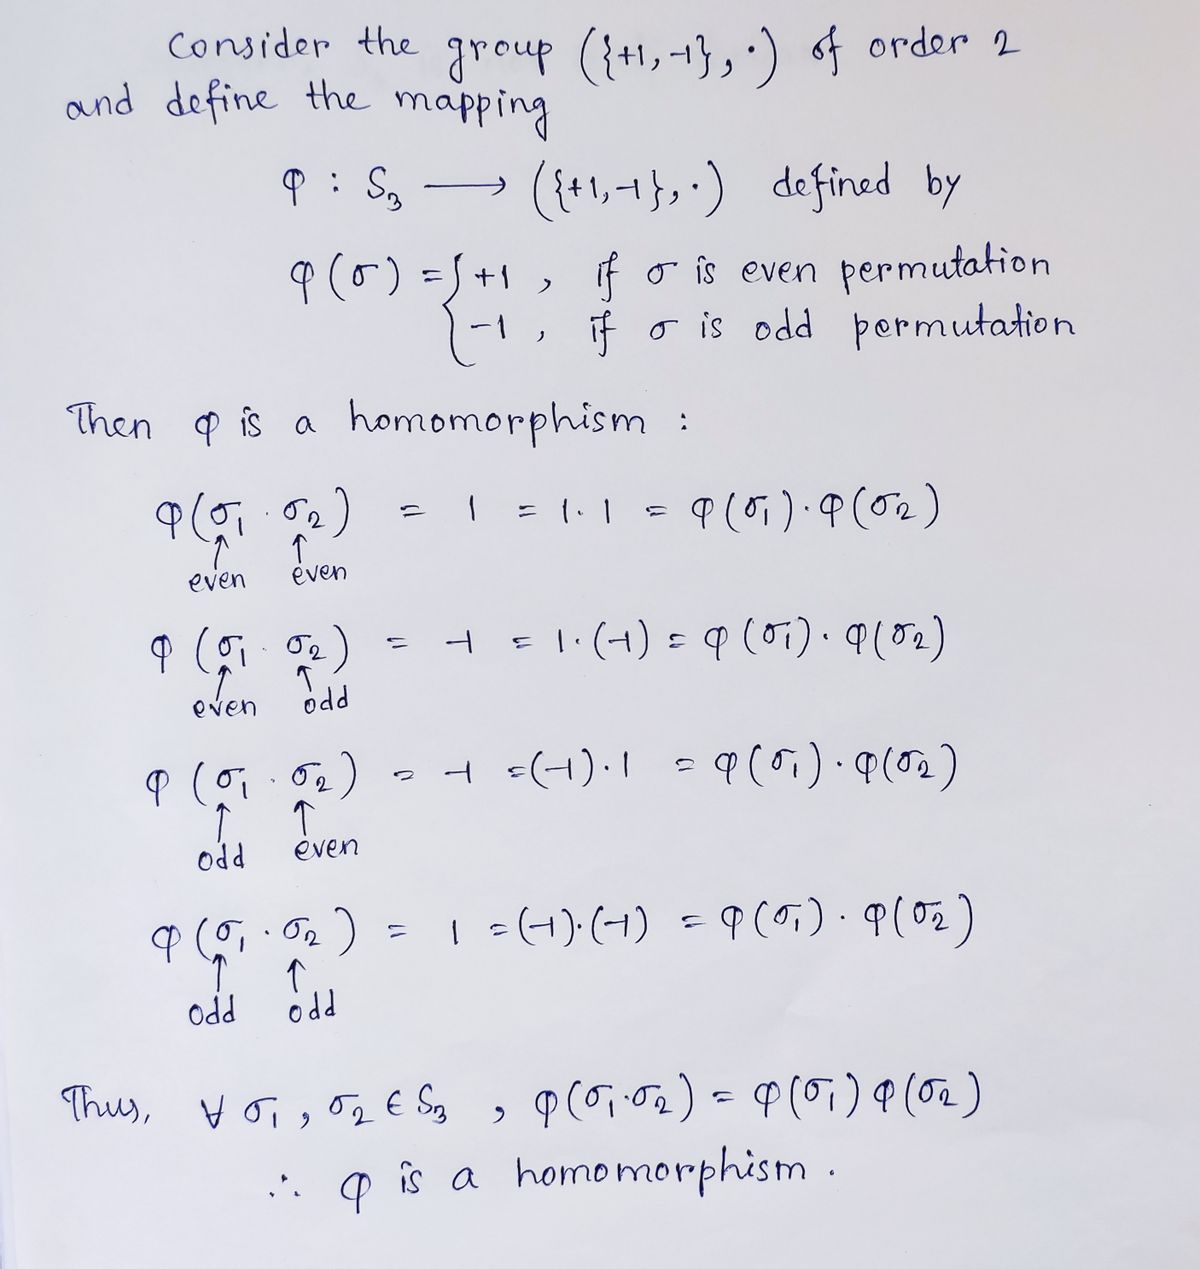 Consider the group ({+1, -1}, ·) of order 2
and define the mapping
φ : S₃ ⟶ ({+1, -1}, ·) defined by
φ(σ) = { +1 , if σ is even permutation
-1 , if σ is odd permutation
Then φ is a homomorphism :
φ(σ₁ · σ₂) = 1 = 1·1 = φ(σ₁)·φ(σ₂)
↑ ↑
even even
φ(σ₁ · σ₂) = -1 = 1·(-1) = φ(σ₁)·φ(σ₂)
↑ ↑
even odd
φ(σ₁ · σ₂) = -1 = (-1)·1 = φ(σ₁)·φ(σ₂)
↑ ↑
odd even
φ(σ₁ · σ₂) = 1 = (-1)·(-1) = φ(σ₁)·φ(σ₂)
↑ ↑
odd odd
Thus, ∀ σ₁, σ₂ ∈ S₃ , φ(σ₁·σ₂) = φ(σ₁) φ(σ₂)
∴ φ is a homomorphism.